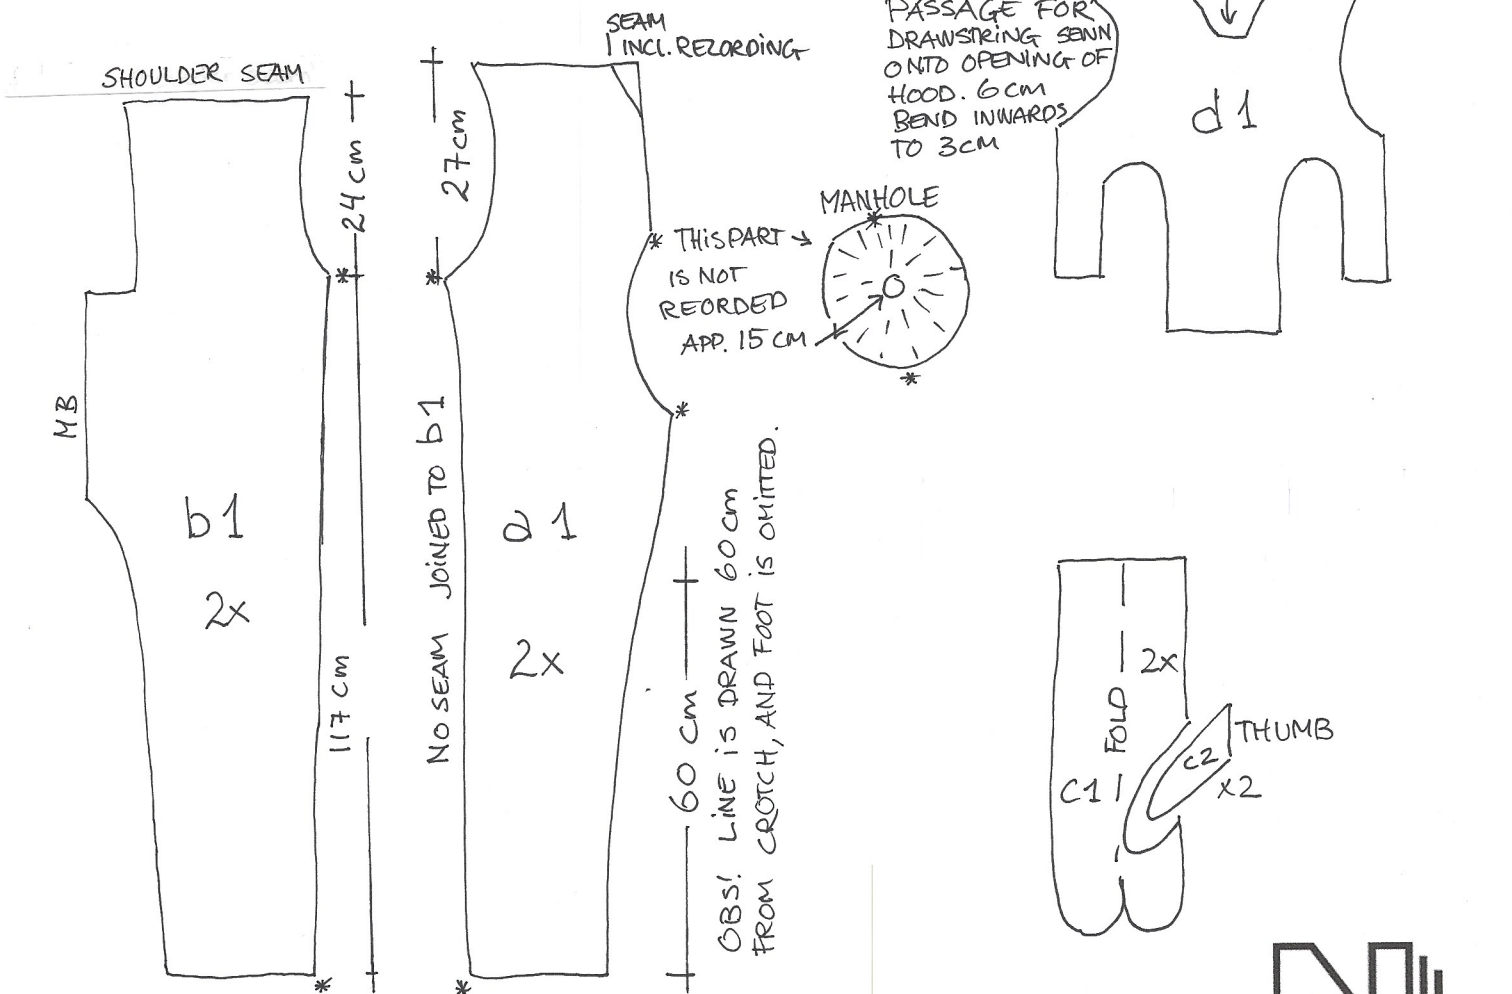 SHOULDER SEAM
24 cm
MB
b1
2x
117 cm
SEAM
INCL. REZORDING
27cm
NO SEAM JOINED TO b1
a 1
2x
* THIS PART
IS NOT
REORDED
APP. 15 CM
MANHOLE
60 cm
OBS! LINE IS DRAWN 60 cm
FROM CROTCH, AND FOOT IS OMITTED.
PASSAGE FOR
DRAWSTRING SENN
ONTO OPENING OF
HOOD. 6 CM
BEND INWARDS
TO 3 CM
d 1
2x
FOLD
C1
C2
THUMB
x2